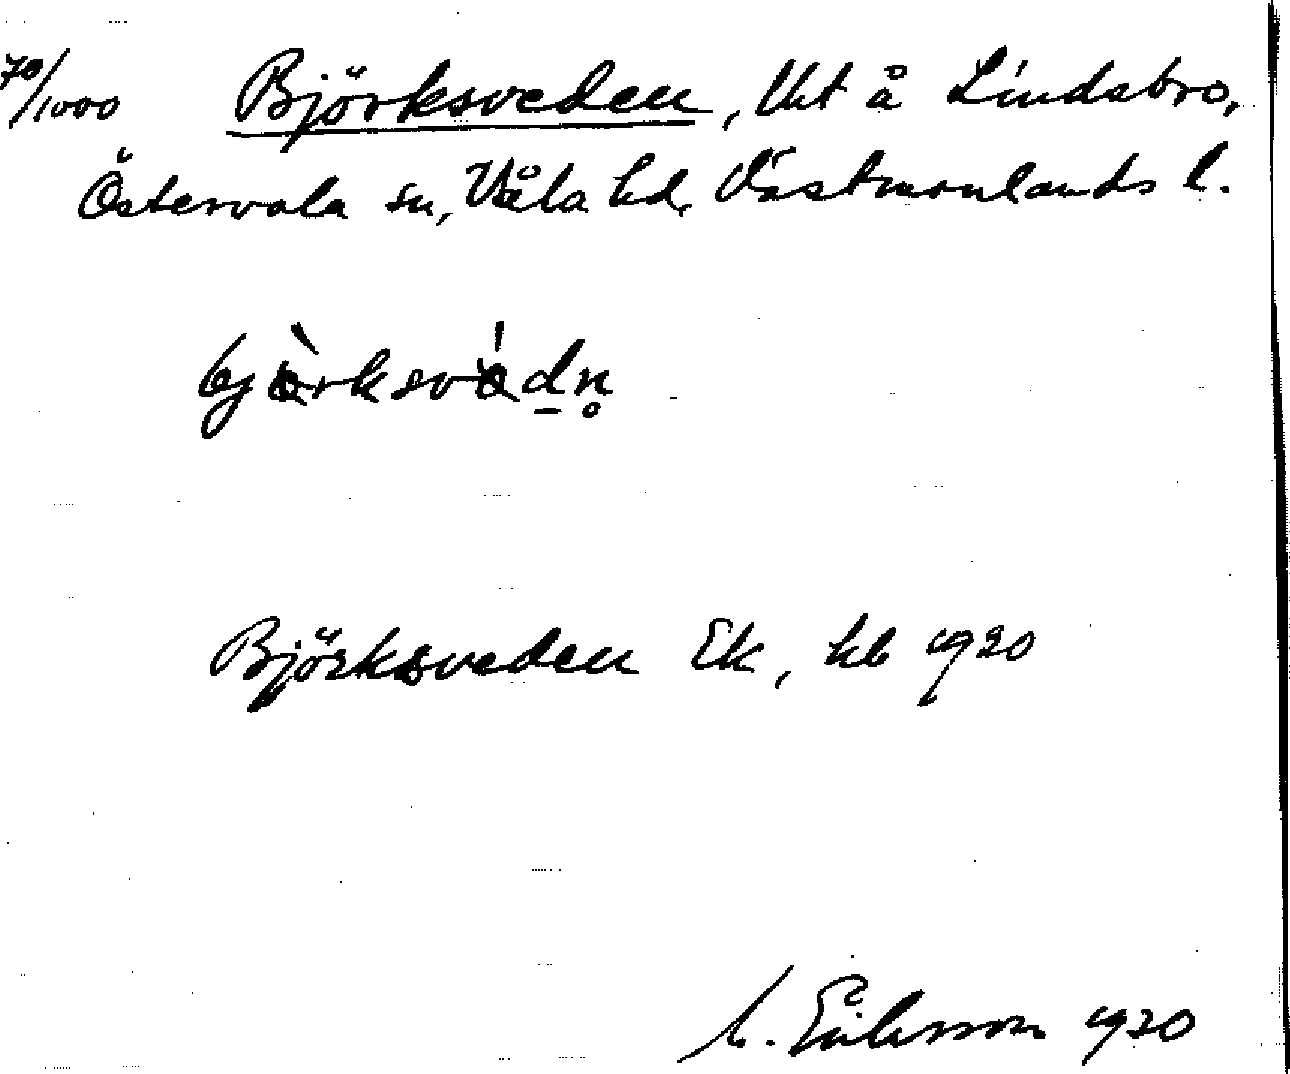 70/1000 Björksveden, Uht å Lindsbro,
Östervåla sn, Våla hd, Västmanlands l.
Björksveden Ek, hb 1920
Eriksson 1920